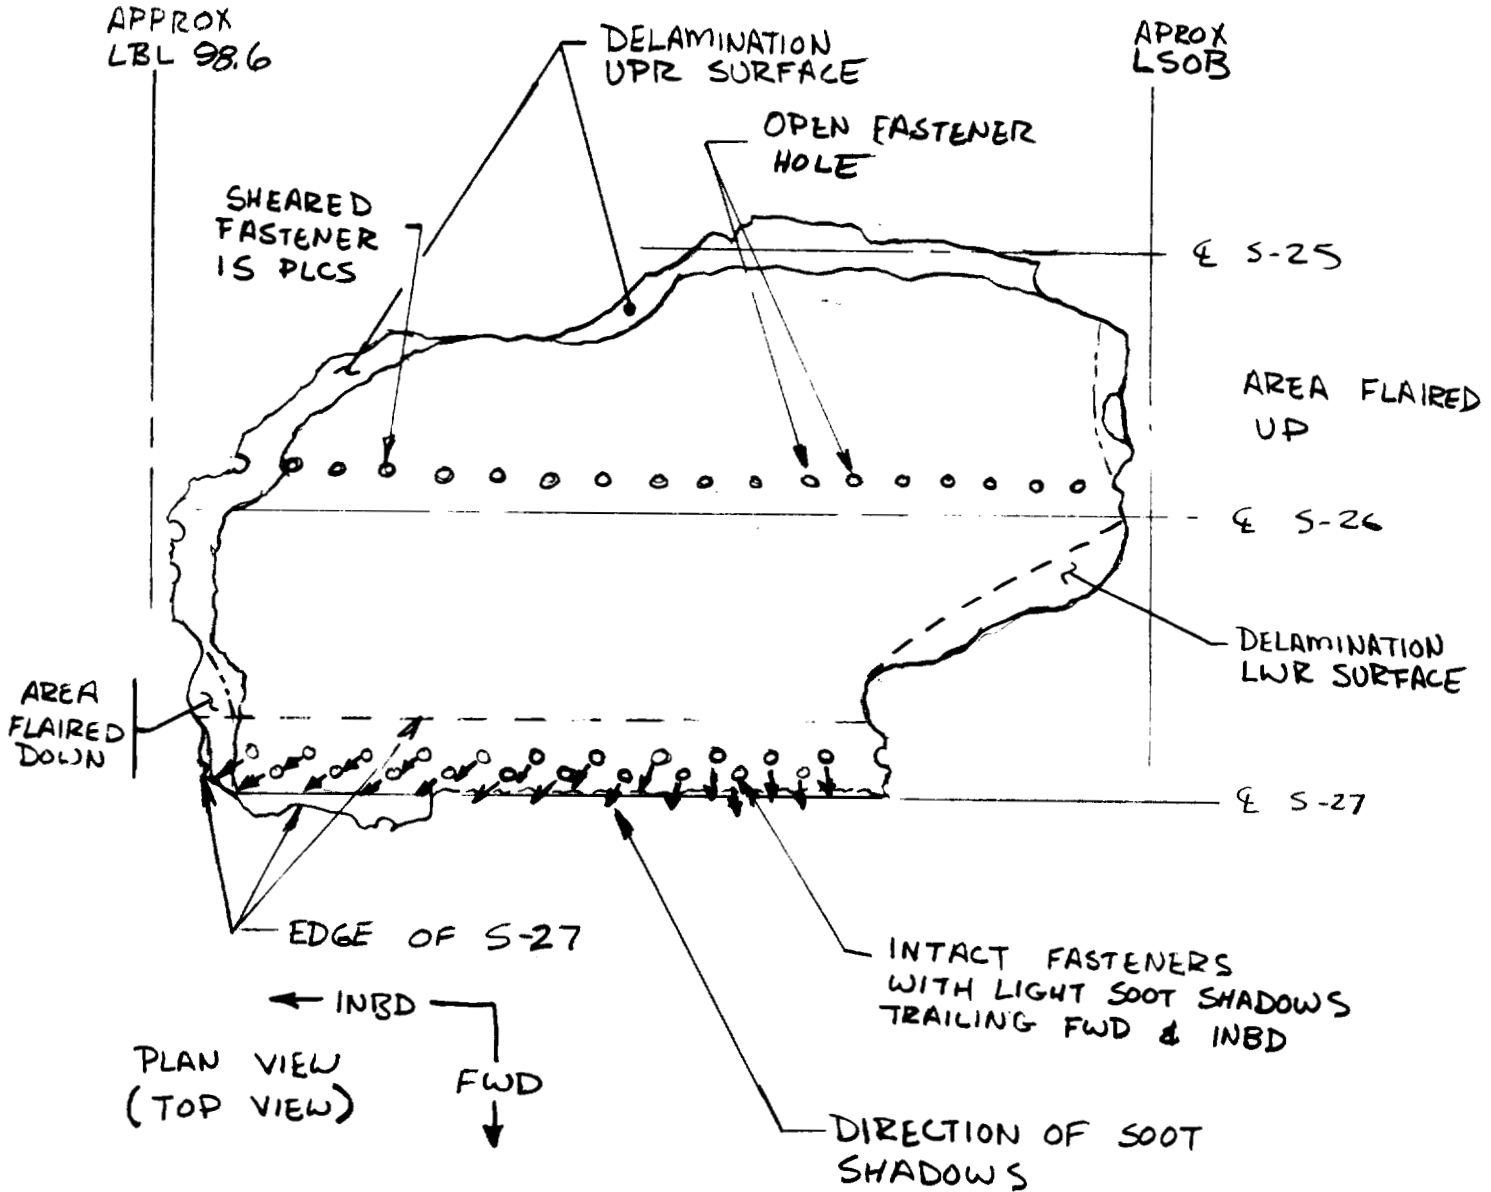 APPROX
LBL 98.6
DELAMINATION
UPR SURFACE
APROX
LSOB
OPEN FASTENER
HOLE
SHEARED
FASTENER
15 PLCS
℄ S-25
AREA FLAIRED
UP
℄ S-26
DELAMINATION
LWR SURFACE
AREA
FLAIRED
DOWN
℄ S-27
EDGE OF S-27
INTACT FASTENERS
WITH LIGHT SOOT SHADOWS
TRAILING FWD & INBD
INBD
PLAN VIEW
(TOP VIEW)
FWD
DIRECTION OF SOOT
SHADOWS